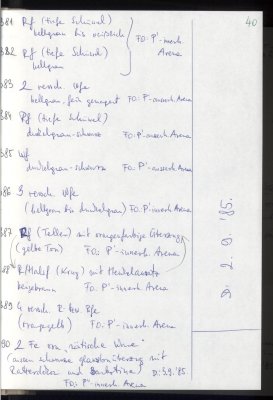 40
381 Rf (tiefe Schüssel)
hellgrau bis weißlich
FO: P'-innerh.
Arena
382 Rf (tiefe Schüssel)
hellgrau
383 2 versch. Wfe
hellgrau, fein gemagert FO: P'-innerh. Arena
384 Rf (tiefe Schüssel)
dunkelgrau-schwarz FO: P'-innerh. Arena
385 Wf
dunkelgrau-schwarz FO: P'-innerh. Arena
386 3 versch. Wfe
(hellgrau bis dunkelgrau) FO: P'-innerh. Arena
387 Rf (Teller) mit orangefarbigem Überzug
(gelber Ton) FO: P'-innerh. Arena
388 (Krug) mit Henkelansatz
beigebraun FO: P'-innerh. Arena
389 4 versch. Bfe
(orangegelb) FO: P'-innerh. Arena
390 2 Fe von "rätische Ware"
(außen schwarzer Glanztonüberzug mit
D: 3.9.'85
FO: P'-innerh. Arena
D: 2.9.'85.